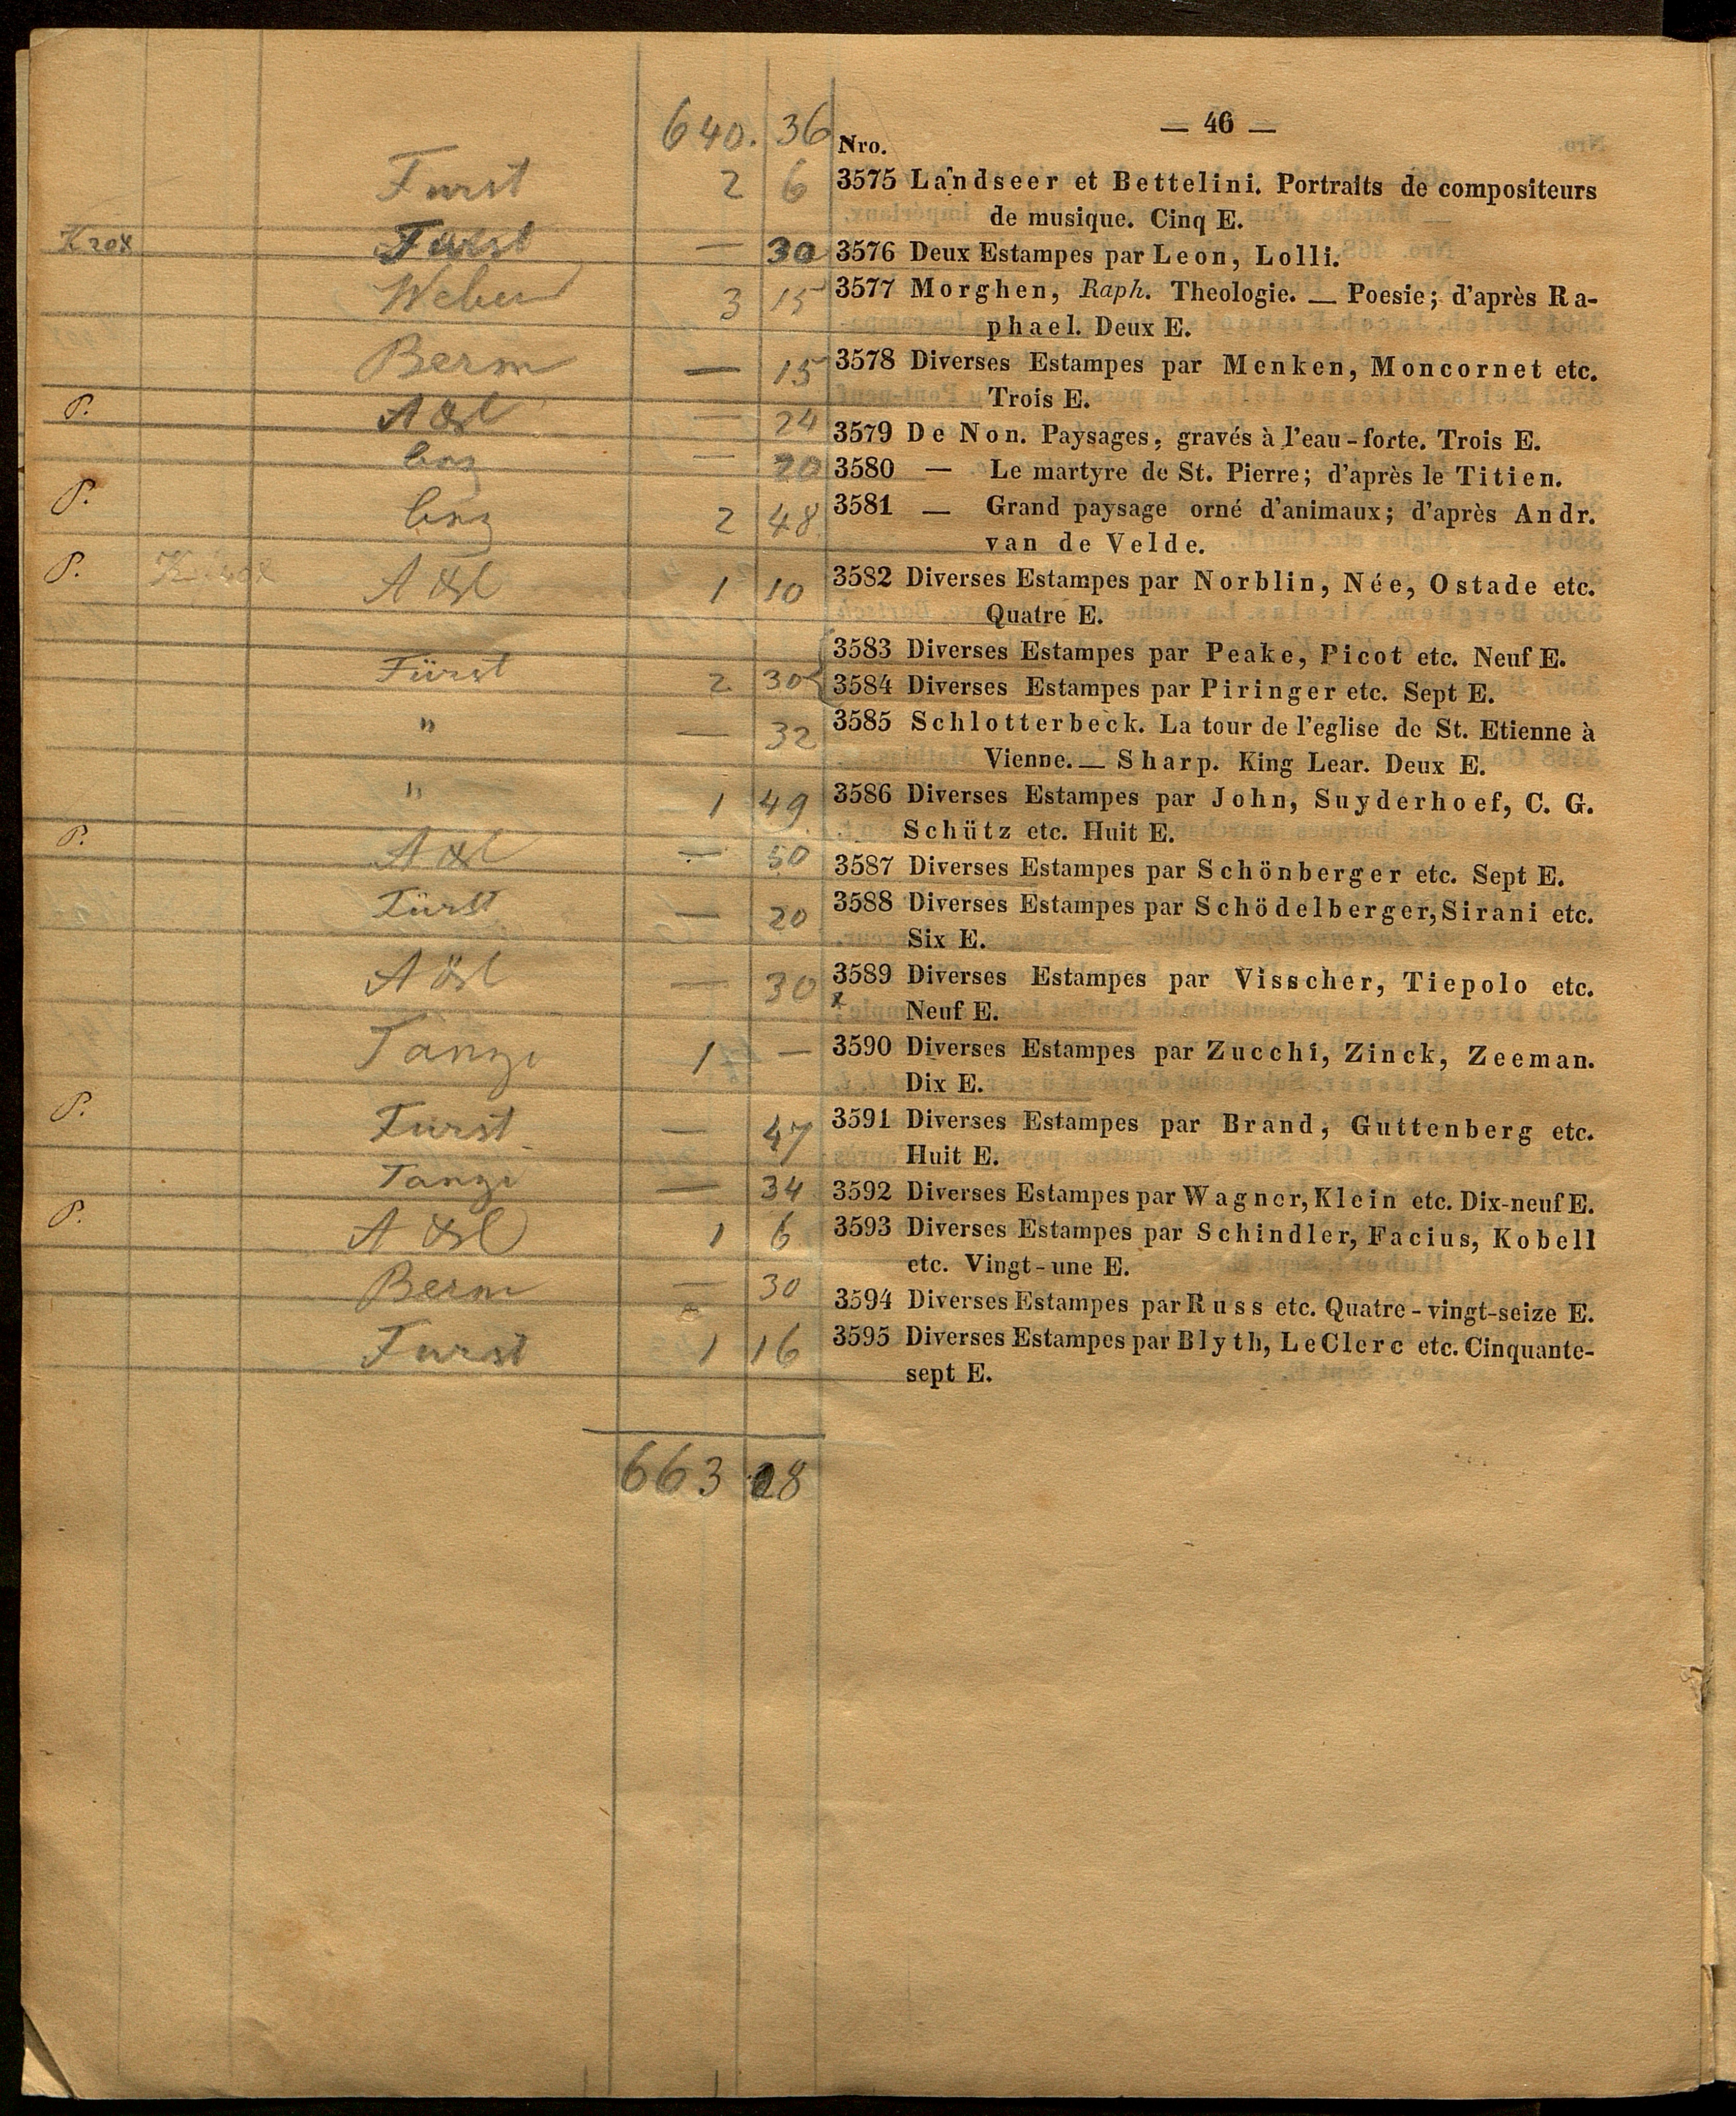 — 46 —
640. 36
Nro.
Furst 2 6 3575 Landseer et Bettelini. Portraits de compositeurs
de musique. Cinq E.
Furst — 30 3576 Deux Estampes par Leon, Lolli.
Weber 3 15 3577 Morghen, Raph. Theologie. — Poesie; d'après Ra-
phael. Deux E.
Berm — 15 3578 Diverses Estampes par Menken, Moncornet etc.
Trois E.
P. — 24 3579 De Non. Paysages, gravés à l'eau-forte. Trois E.
— 20 3580 — Le martyre de St. Pierre; d'après le Titien.
P. 2 48 3581 — Grand paysage orné d'animaux; d'après Andr.
van de Velde.
P. 1 10 3582 Diverses Estampes par Norblin, Née, Ostade etc.
Quatre E.
3583 Diverses Estampes par Peake, Picot etc. Neuf E.
Fürst 2 30 3584 Diverses Estampes par Piringer etc. Sept E.
" — 32 3585 Schlotterbeck. La tour de l'eglise de St. Etienne à
Vienne. — Sharp. King Lear. Deux E.
" 1 49 3586 Diverses Estampes par John, Suyderhoef, C. G.
Schütz etc. Huit E.
P. — 50 3587 Diverses Estampes par Schönberger etc. Sept E.
Fürst — 20 3588 Diverses Estampes par Schödelberger, Sirani etc.
Six E.
— 30 3589 Diverses Estampes par Visscher, Tiepolo etc.
Neuf E.
1 — 3590 Diverses Estampes par Zucchi, Zinck, Zeeman.
Dix E.
P. Furst — 47 3591 Diverses Estampes par Brand, Guttenberg etc.
Huit E.
— 34 3592 Diverses Estampes par Wagner, Klein etc. Dix-neuf E.
P. 1 6 3593 Diverses Estampes par Schindler, Facius, Kobell
etc. Vingt-une E.
Berm — 30 3594 Diverses Estampes par Russ etc. Quatre-vingt-seize E.
Furst 1 16 3595 Diverses Estampes par Blyth, Le Clerc etc. Cinquante-
sept E.
663 28